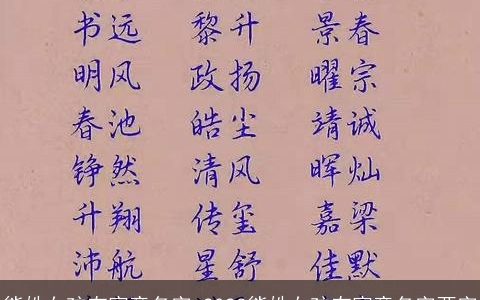 书远 黎升 景春
明风 政扬 曜宗
春池 皓尘 靖诚
铮然 清风 晖灿
升翔 传玺 嘉梁
沛航 星舒 佳默